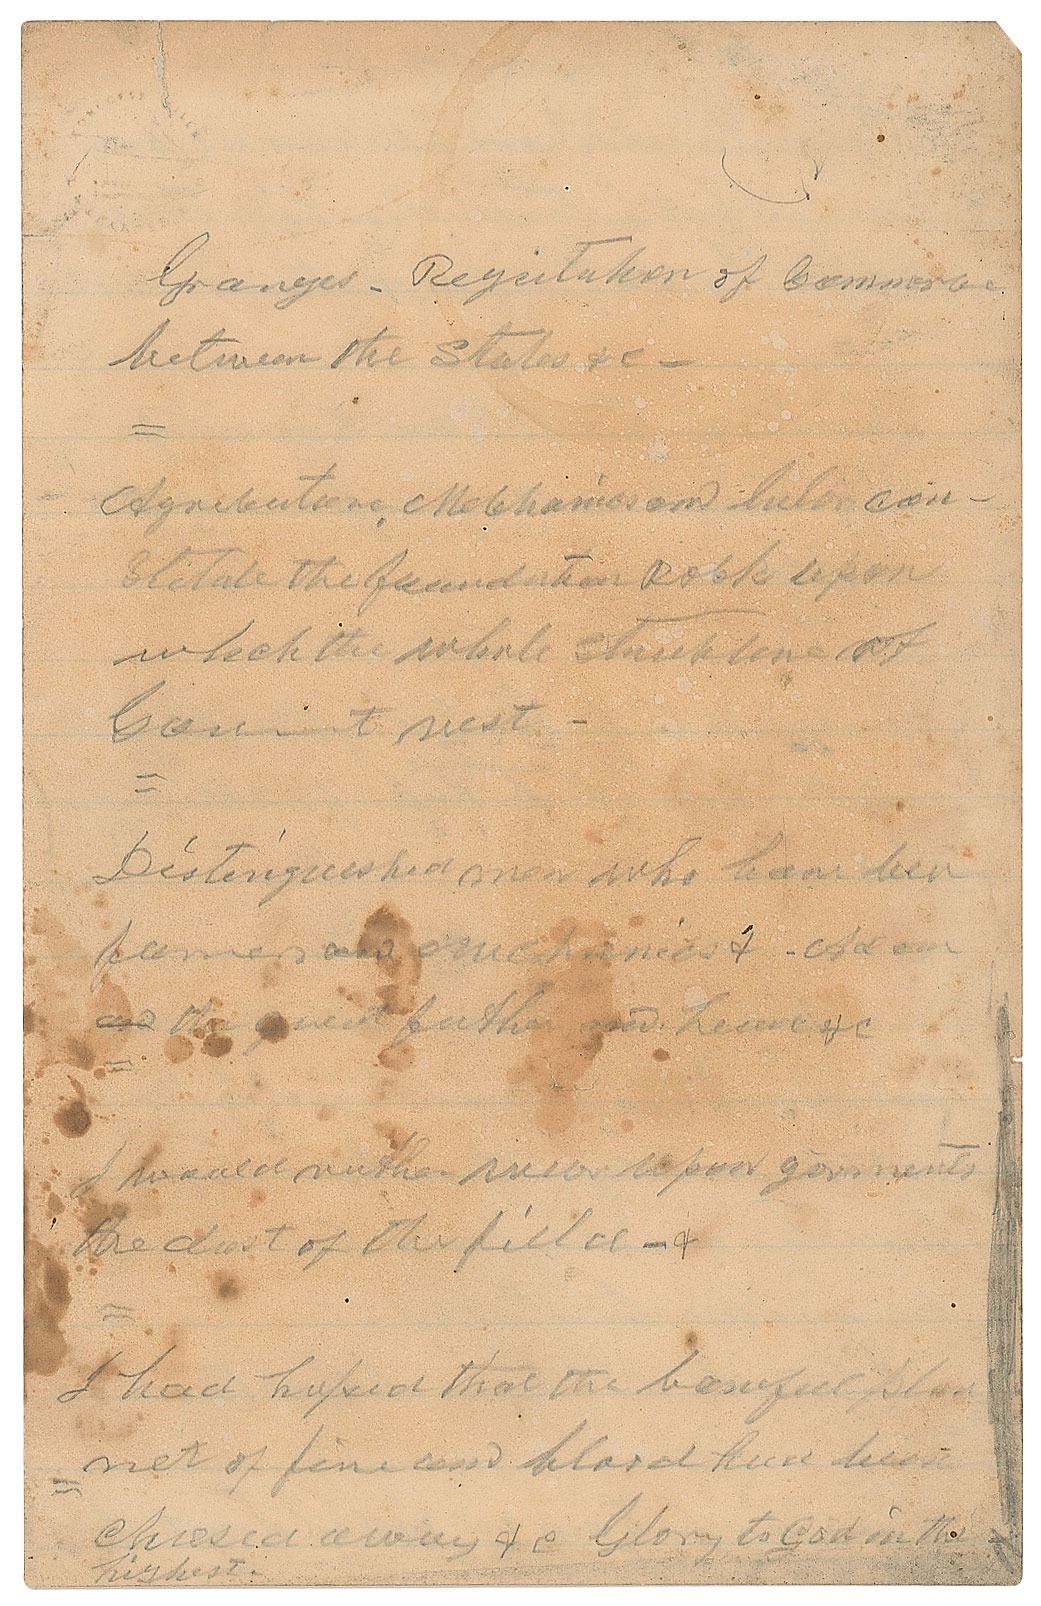 Granges - Regulation of Commerce
between the States &c -
=
Agriculture, Mechanics and labor con-
stitute the foundation Rocks upon
which the whole structure of
Government rest -
=
Distinguished men who have been
farmers and mechanics & - Adam
the great father and &c
=
I would rather upon garments
the dust of the field - &
=
I had hoped that the baneful plan
net of fire and blood had been
=
chased away &c Glory to God in the
highest.